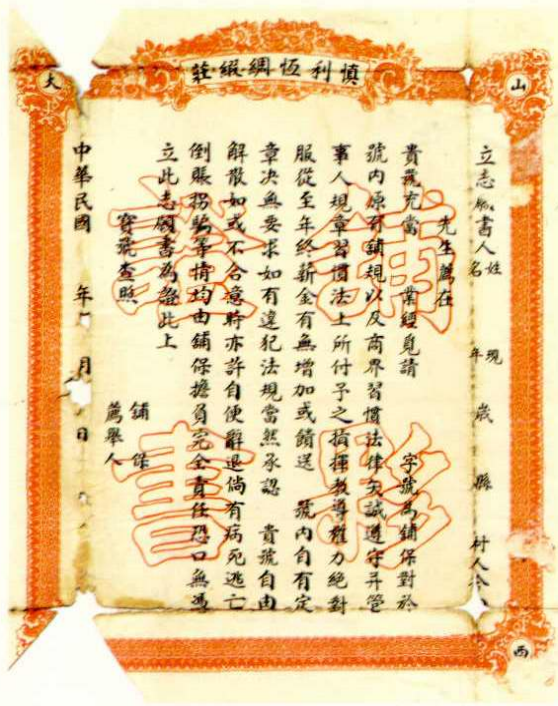 慎利恆綢緞莊
山
西
大
舖夥
證書
立志願書人姓名 現年 歲 縣 村人今
先生薦在
貴號充當 業經覓請 字號為舖保對於
號內原有舖規以及商界習慣法律矢誠遵守并管
事人規章習慣法上所付予之指揮教導權力絕對
服從至年終薪金有無增加或餽送 號內自有定
章决無要求如有違犯法規當然承認 貴號自由
解散如或不合意時亦許自便辭退倘有病死逃亡
倒賬拐騙等情均由舖保擔負完全責任恐口無憑
立此志願書為證此上
寶號查照
舖保
薦舉人
中華民國 年 月 日